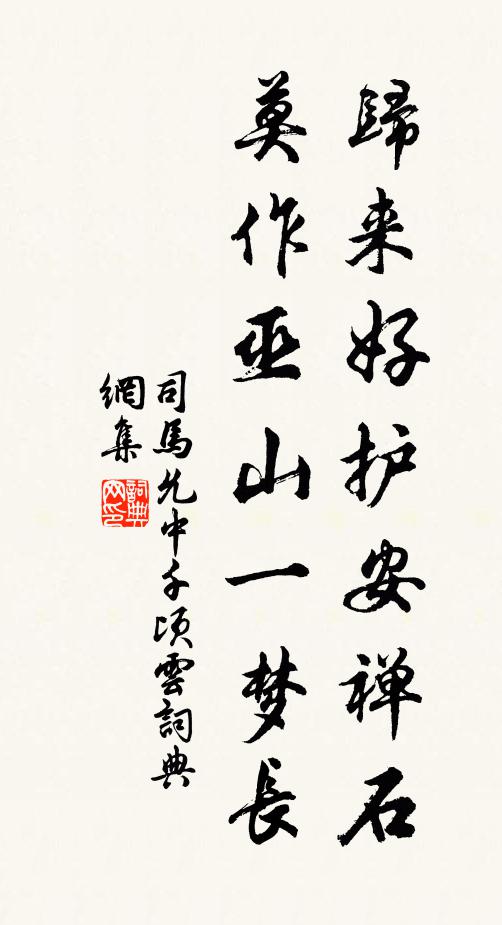 歸来好护安禅石
莫作巫山一梦長
司馬允中千頃雲詞典
網集
詞典
网印